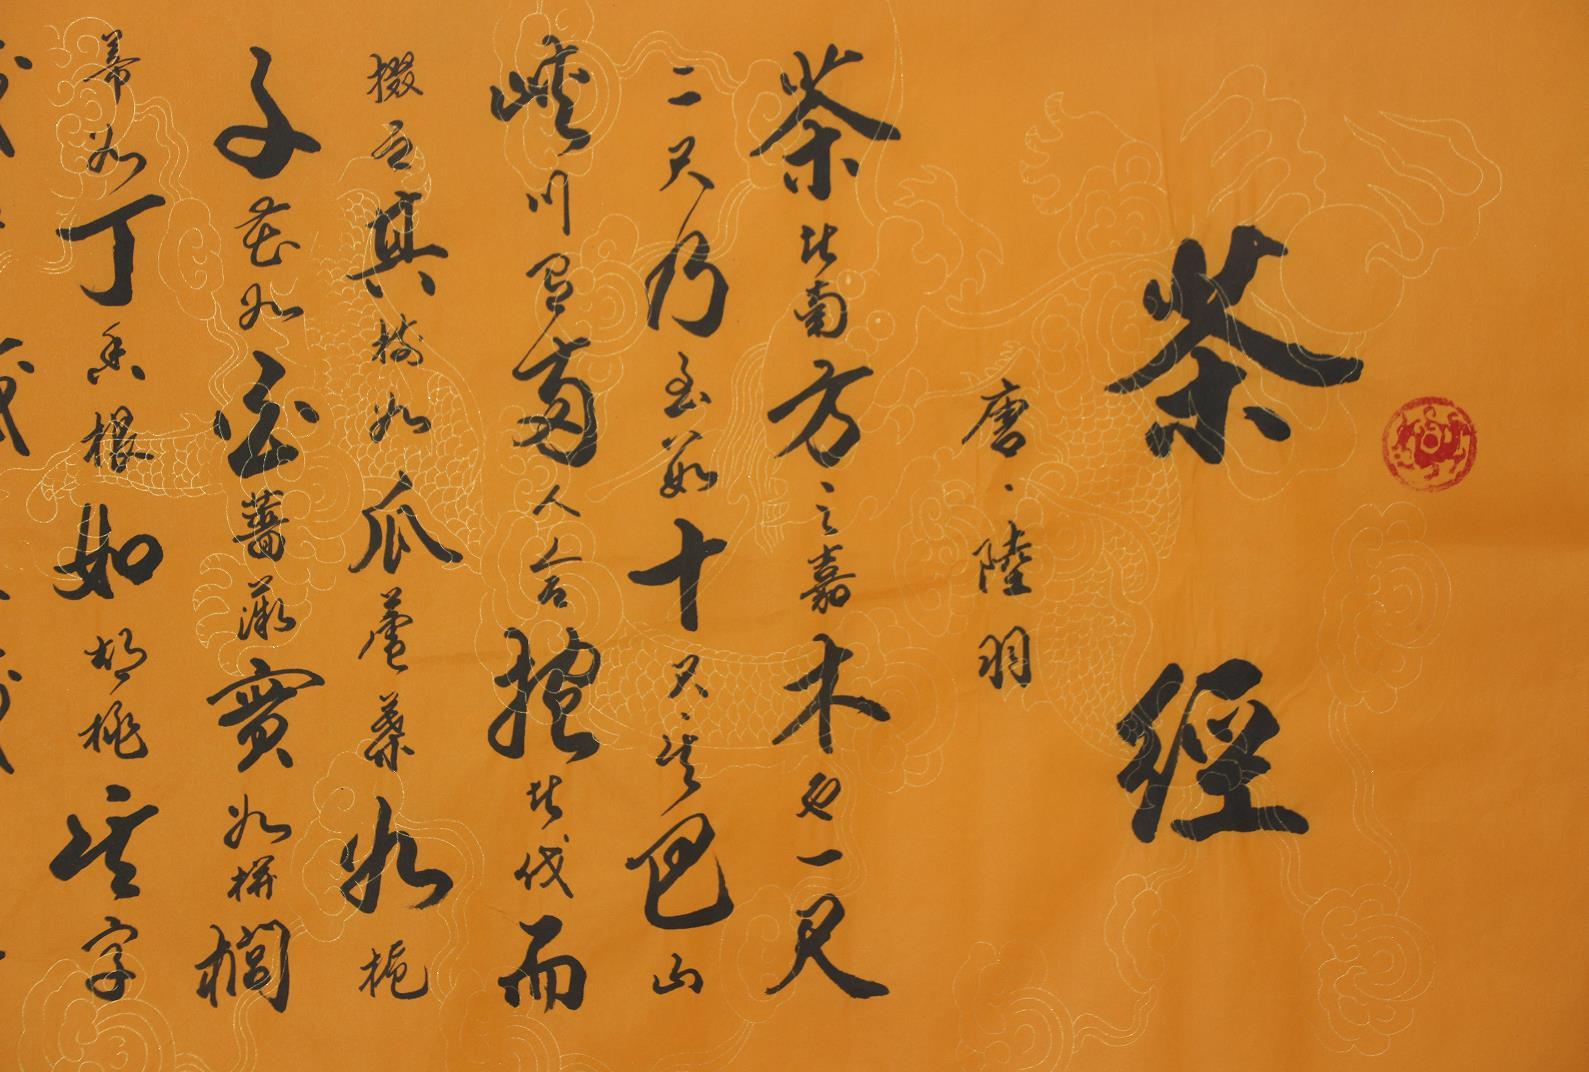 茶經
唐、陸羽
茶者南方之嘉木也一尺
二尺乃至數十尺、其巴山
峽川有兩人合抱者伐而
掇之其樹如瓜蘆葉如梔
子花如白薔薇實如栟櫚
蒂如丁香根如胡桃其字